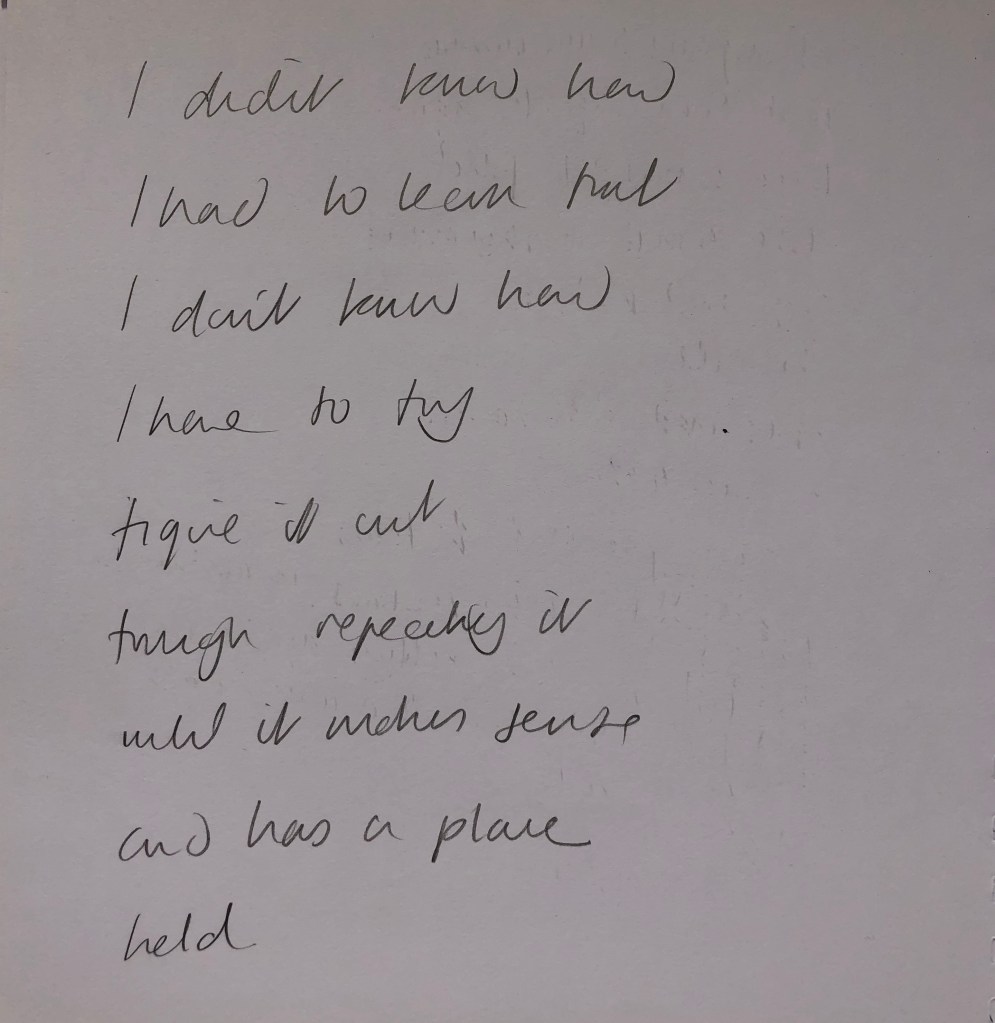 I didn't know how
I had to learn that
I don't know how
I have to try
figure it out
through repeating it
until it makes sense
and has a place
held